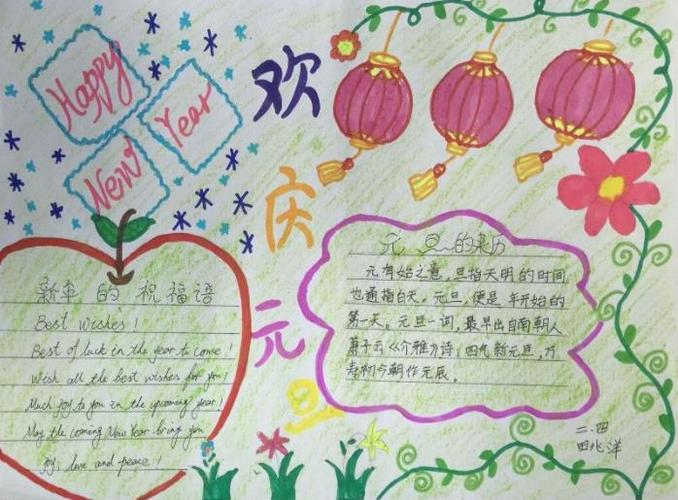 Happy
New
Year
欢
庆
元
旦
新年的祝福语
Best Wishes!
Best of luck in the year to come!
Wish all the best wishes for you!
Much joy to you in the upcoming year!
May the coming New Year bring you
joy, love and peace!
元旦的来历
元有始之意,旦指天明的时间
也通指白天。元旦,便是年开始的
第一天。元旦一词,最早出自南朝人
萧子云《介雅》诗:四气新元旦,万
寿初今朝作元辰。
二.四
田兆洋